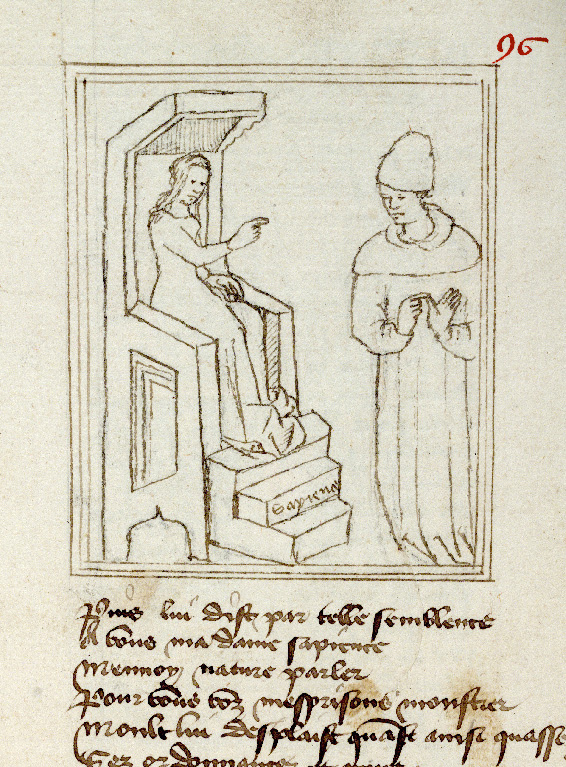 96
Sapiena
Puis lui dist par telle semblence
A vous ma dame sapience
Mennoy nature parler
Pour vous voz mesprisons monstrer
Moult lui desplaist quaſt ainsi quasse
Sez ordonnances et